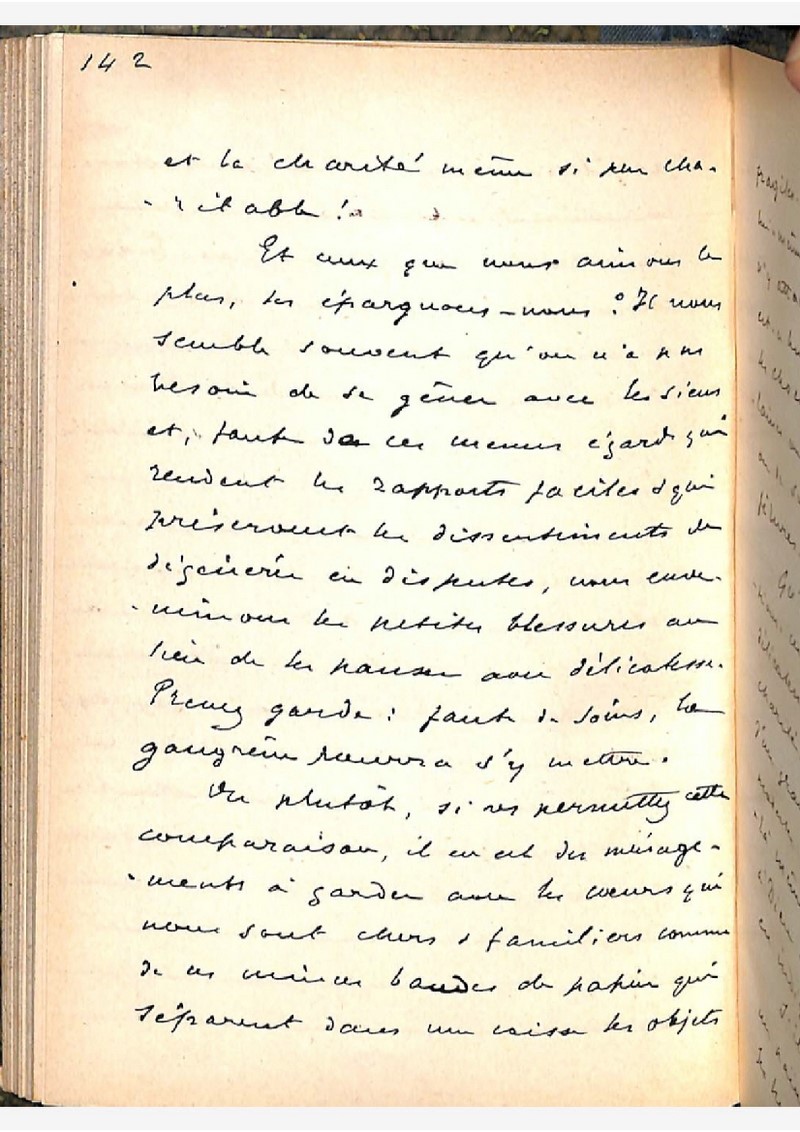 142
et la charité même si peu cha-
-ritable !
Et ceux que nous aimons le
plus, les épargnons-nous ? Il nous
semble souvent qu'on n'a pas
besoin de se gêner avec les siens
et, faute de ces menus égards qui
rendent les rapports faciles & qui
préservent les dissentiments de
dégénérer en disputes, nous enve-
-nimons les petites blessures au
lieu de les panser avec délicatesse.
Prenez garde : faute de soins, la
gangrène pourra s'y mettre.
Ou plutôt, si vs permettez cette
comparaison, il en est des ménage-
-ments à garder avec les cœurs qui
nous sont chers & familiers comme
de ces minces bandes de papier qui
séparent dans une caisse les objets
fragiles